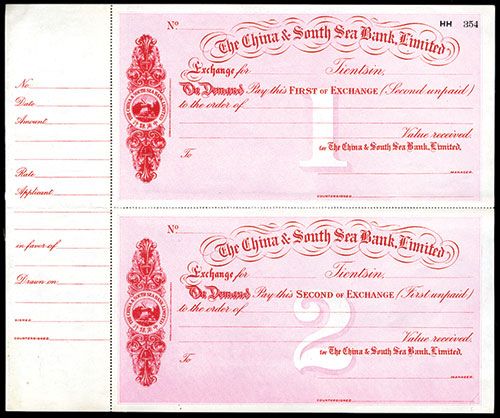 No
Date
Amount
Rate
Applicant
in favor of
Drawn on
SIGNED
COUNTERSIGNED
No HH 354
The China & South Sea Bank, Limited
Exchange for Tientsin,
On Demand Pay this FIRST OF EXCHANGE (Second unpaid)
to the order of
1
Value received.
To for The China & South Sea Bank, Limited.
MANAGER.
COUNTERSIGNED
No
The China & South Sea Bank, Limited
Exchange for Tientsin,
On Demand Pay this SECOND OF EXCHANGE (First unpaid)
to the order of
2
Value received.
To for The China & South Sea Bank, Limited.
MANAGER.
COUNTERSIGNED